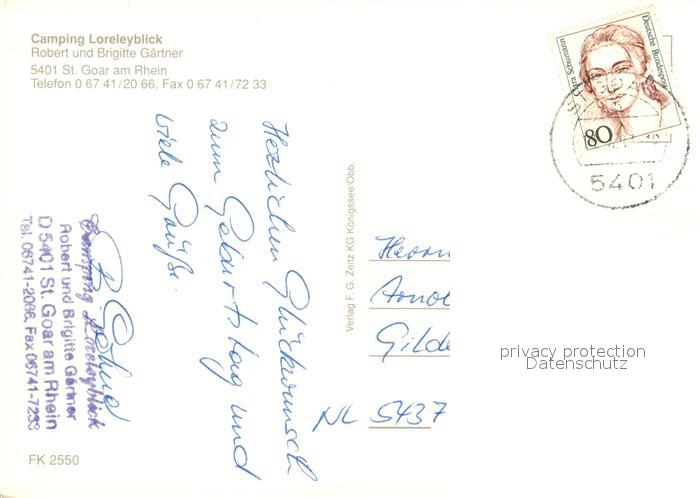 Camping Loreleyblick
Robert und Brigitte Gärtner
5401 St. Goar am Rhein
Telefon 0 67 41/20 66, Fax 0 67 41/72 33
Herzlichen Glückwunsch
zum Geburtstag und
viele Grüße.
Camping Loreleyblick
Robert und Brigitte Gärtner
D 5401 St. Goar am Rhein
Tel. 06741-2066, Fax 06741-7233
FK 2550
Verlag F. G. Zeitz KG Königssee/Obb.
Clara Schumann
Deutsche Bundespost
80
5401
Herrn
Arno
Gilde
NL 5437
privacy protection
Datenschutz